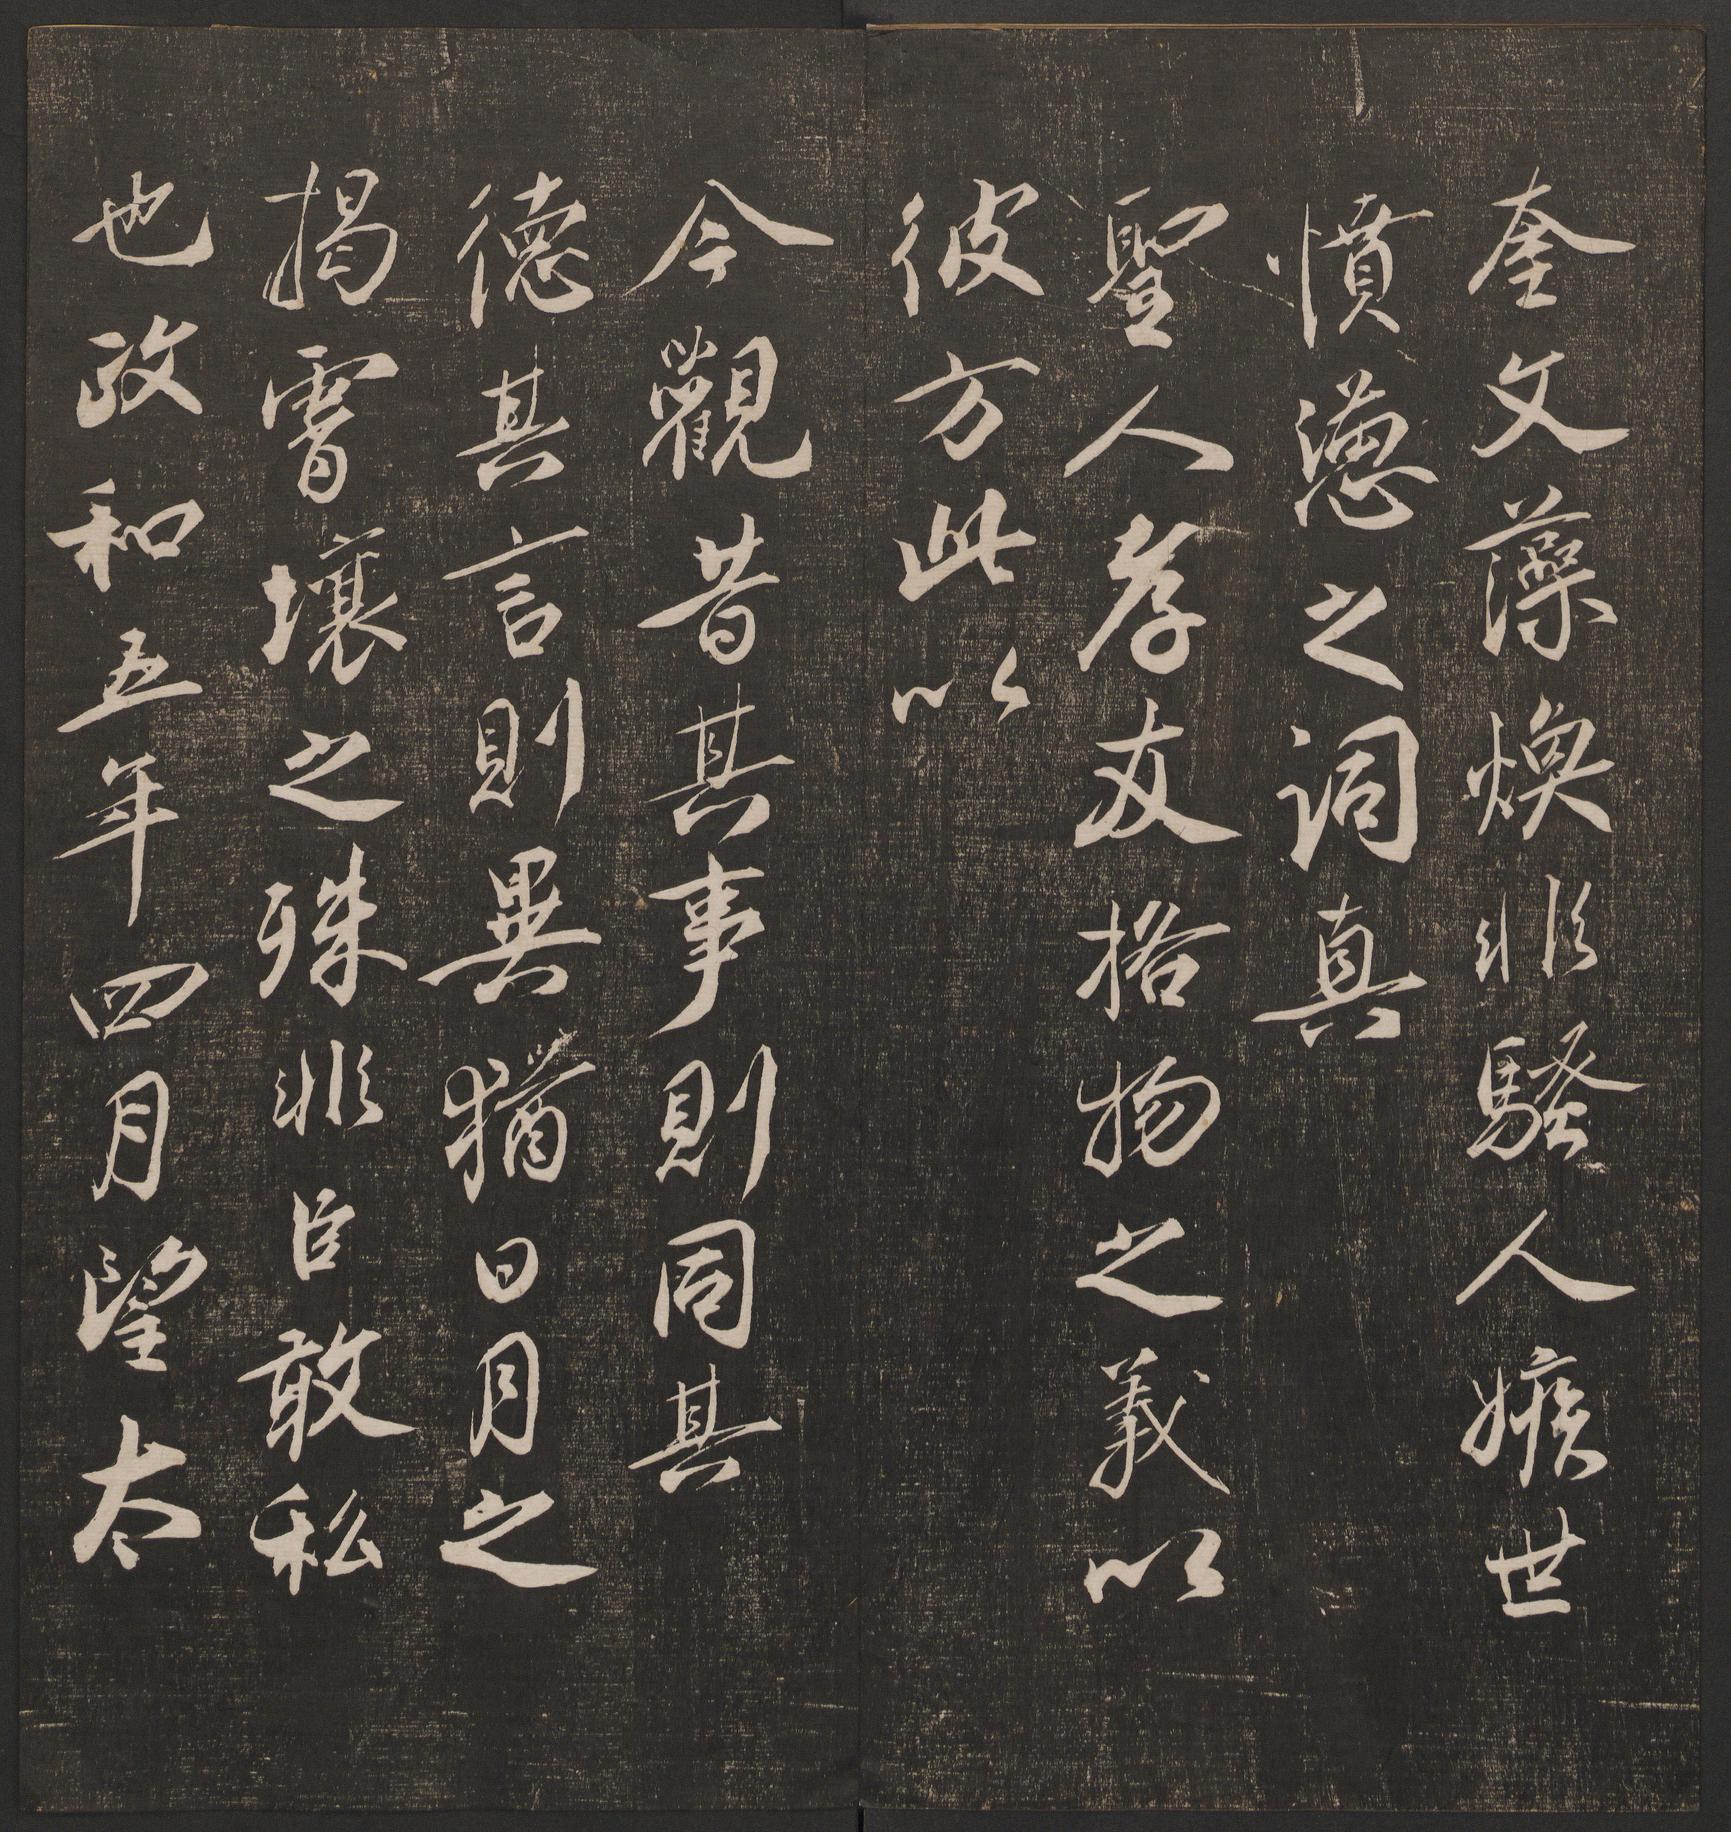 奎文藻煥非騷人嫉世
憤懣之詞真
聖人孝友格物之義以
彼方此以
今觀昔其事則同其
德其言則異猶日月之
揭霄壤之殊非臣敢私
也政和五年四月望太